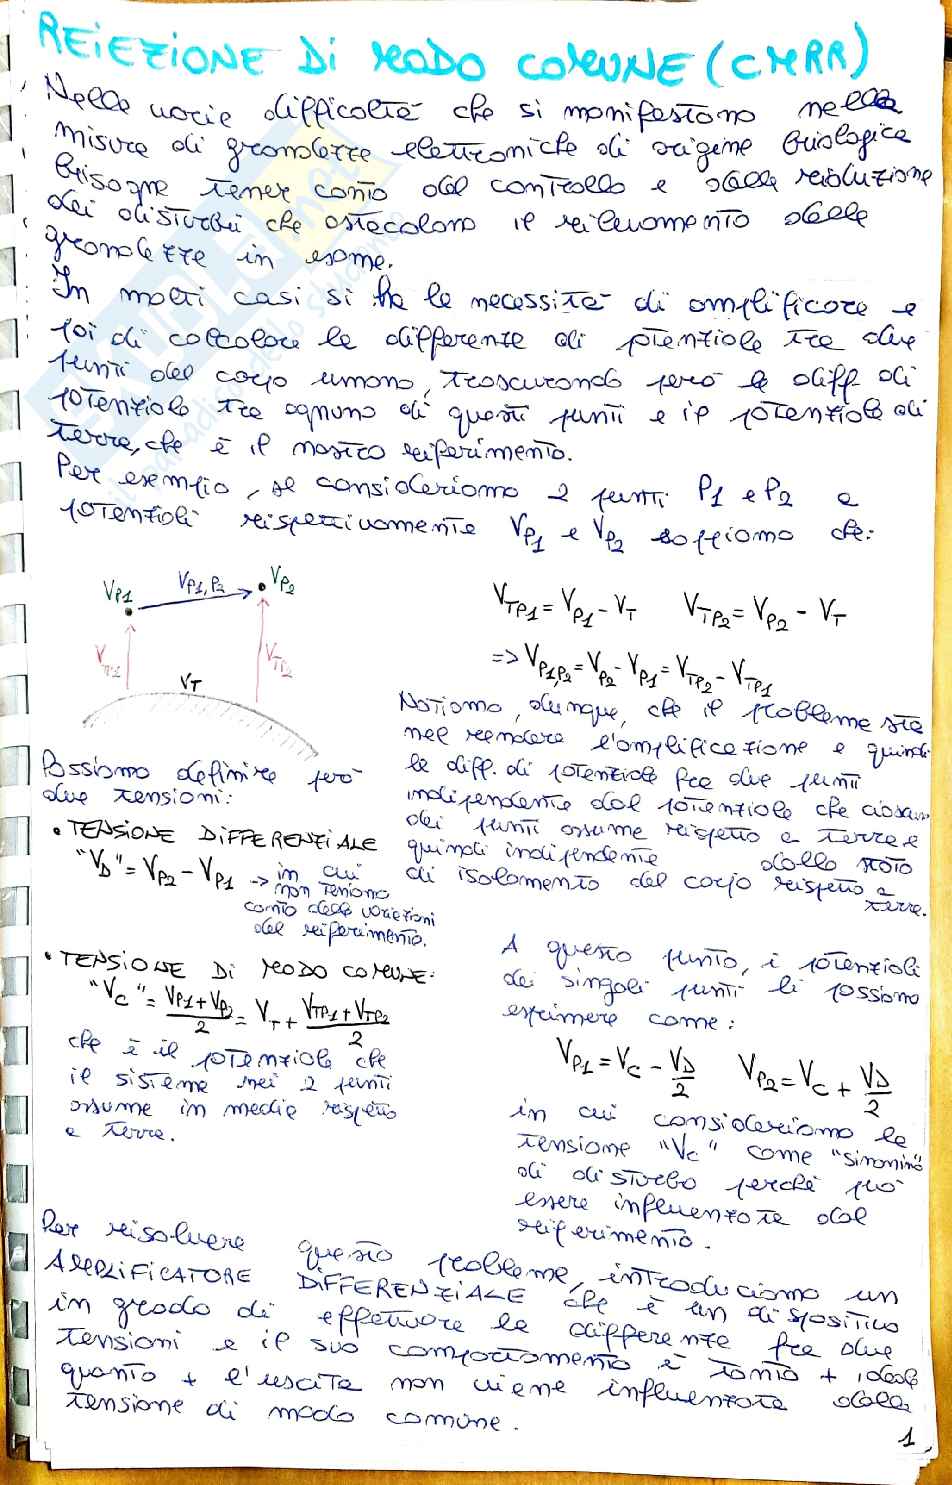 REIEZIONE DI MODO COMUNE (CMRR)
Nelle varie difficoltà che si manifestano nella
misura di grandezze elettroniche di origine biologica
bisogna tener conto del controllo e della riduzione
dei disturbi che ostacolano il rilevamento delle
grandezze in esame.
In molti casi si ha la necessità di amplificare e
poi di calcolare la differenza di ptenziale tra due
punti del corpo umano, trascurando però la diff. di
potenziale tra ognuno di questi punti e il potenziale di
terra, che è il nostro riferimento.
Per esempio, se consideriamo 2 punti P1 e P2 a
potenziali rispettivamente VP1 e VP2 sappiamo che:
VP1
VP1,P2
VP2
VTP1
VTP2
VT
VTP1 = VP1 - VT VTP2 = VP2 - VT
=> VP1,P2 = VP2 - VP1 = VTP2 - VTP1
Notiamo, dunque, che il problema sta
nel rendere l'amplificazione e quindi
la diff. di potenziale fra due punti
indipendente dal potenziale che ciascuno
dei punti assume rispetto a terra e
quindi indipendente dallo stato
di isolamento del corpo rispetto a
terra.
Possiamo definire però
due tensioni:
• TENSIONE DIFFERENZIALE
"VD" = VP2 - VP1 → in cui
non teniamo
conto delle variazioni
del riferimento.
• TENSIONE DI MODO COMUNE:
"VC" = (VP1 + VP2)/2 = VT + (VTP1 + VTP2)/2
che è il potenziale che
il sistema nei 2 punti
assume in media rispetto
a terra.
A questo punto, i potenziali
dei singoli punti li possiamo
esprimere come:
VP1 = VC - VD/2 VP2 = VC + VD/2
in cui consideriamo la
tensione "VC" come "sinonimo"
di disturbo perchè può
essere influenzata dal
riferimento.
Per risolvere questo problema, introduciamo un
AMPLIFICATORE DIFFERENZIALE che è un dispositivo
in grado di effettuare la differenza fra due
tensioni e il suo comportamento è tanto + ideale
quanto + l'uscita non viene influenzata dalla
tensione di modo comune.
1